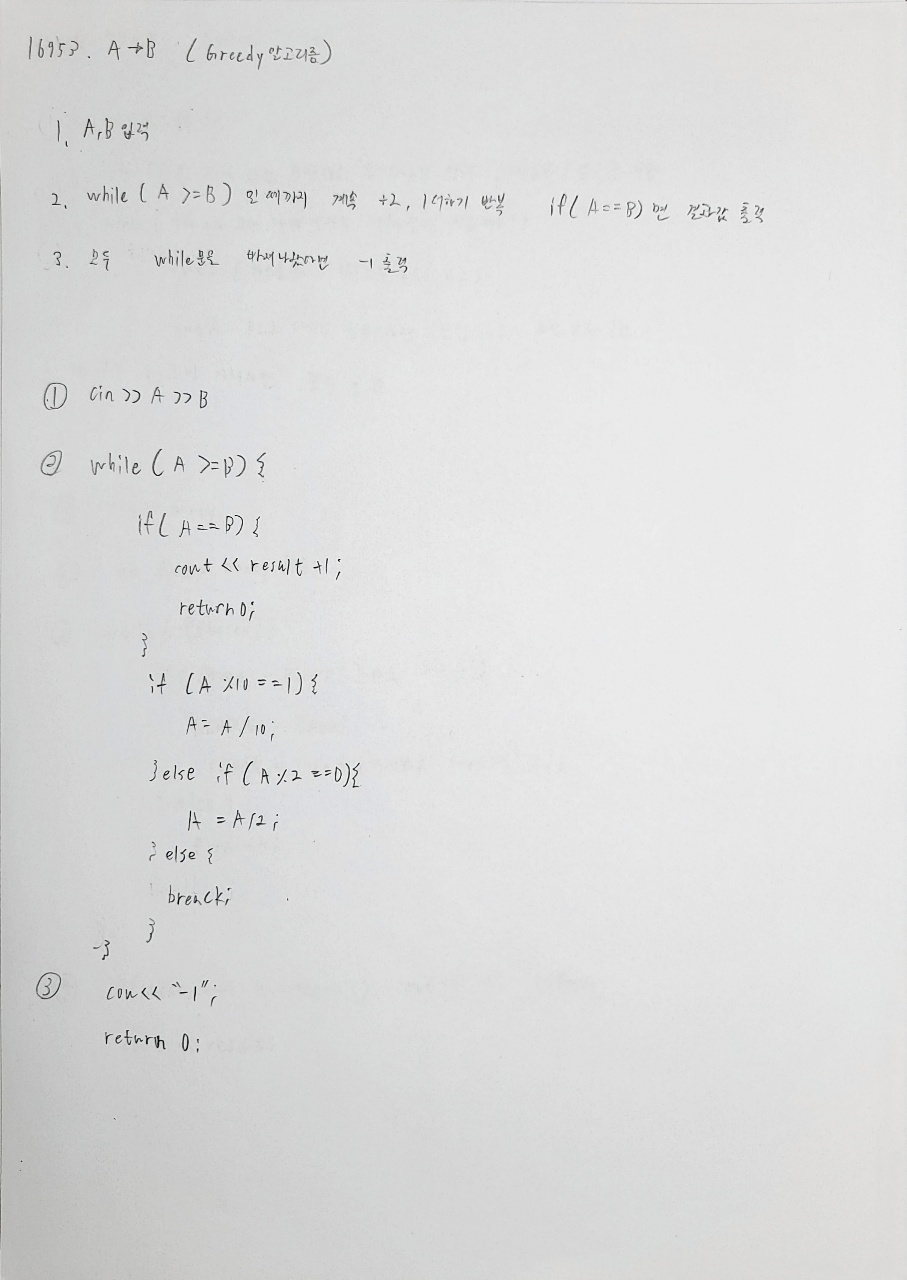 16953. A→B (Greedy 알고리즘)
1. A, B 입력
2. while ( A >=B ) 일 때까지 계속 ÷2, 1 더하기 반복 if( A==B) 면 결과값 출력
3. 모두 while문을 빠져나왔다면 -1 출력
① cin >> A >> B
② while ( A >=B) {
if( A==B) {
cout << result +1;
return 0;
}
if (A %10 ==1) {
A= A / 10;
}else if ( A%2 ==0){
A = A/2;
} else {
break;
}
}
③ cou<< "-1";
return 0;